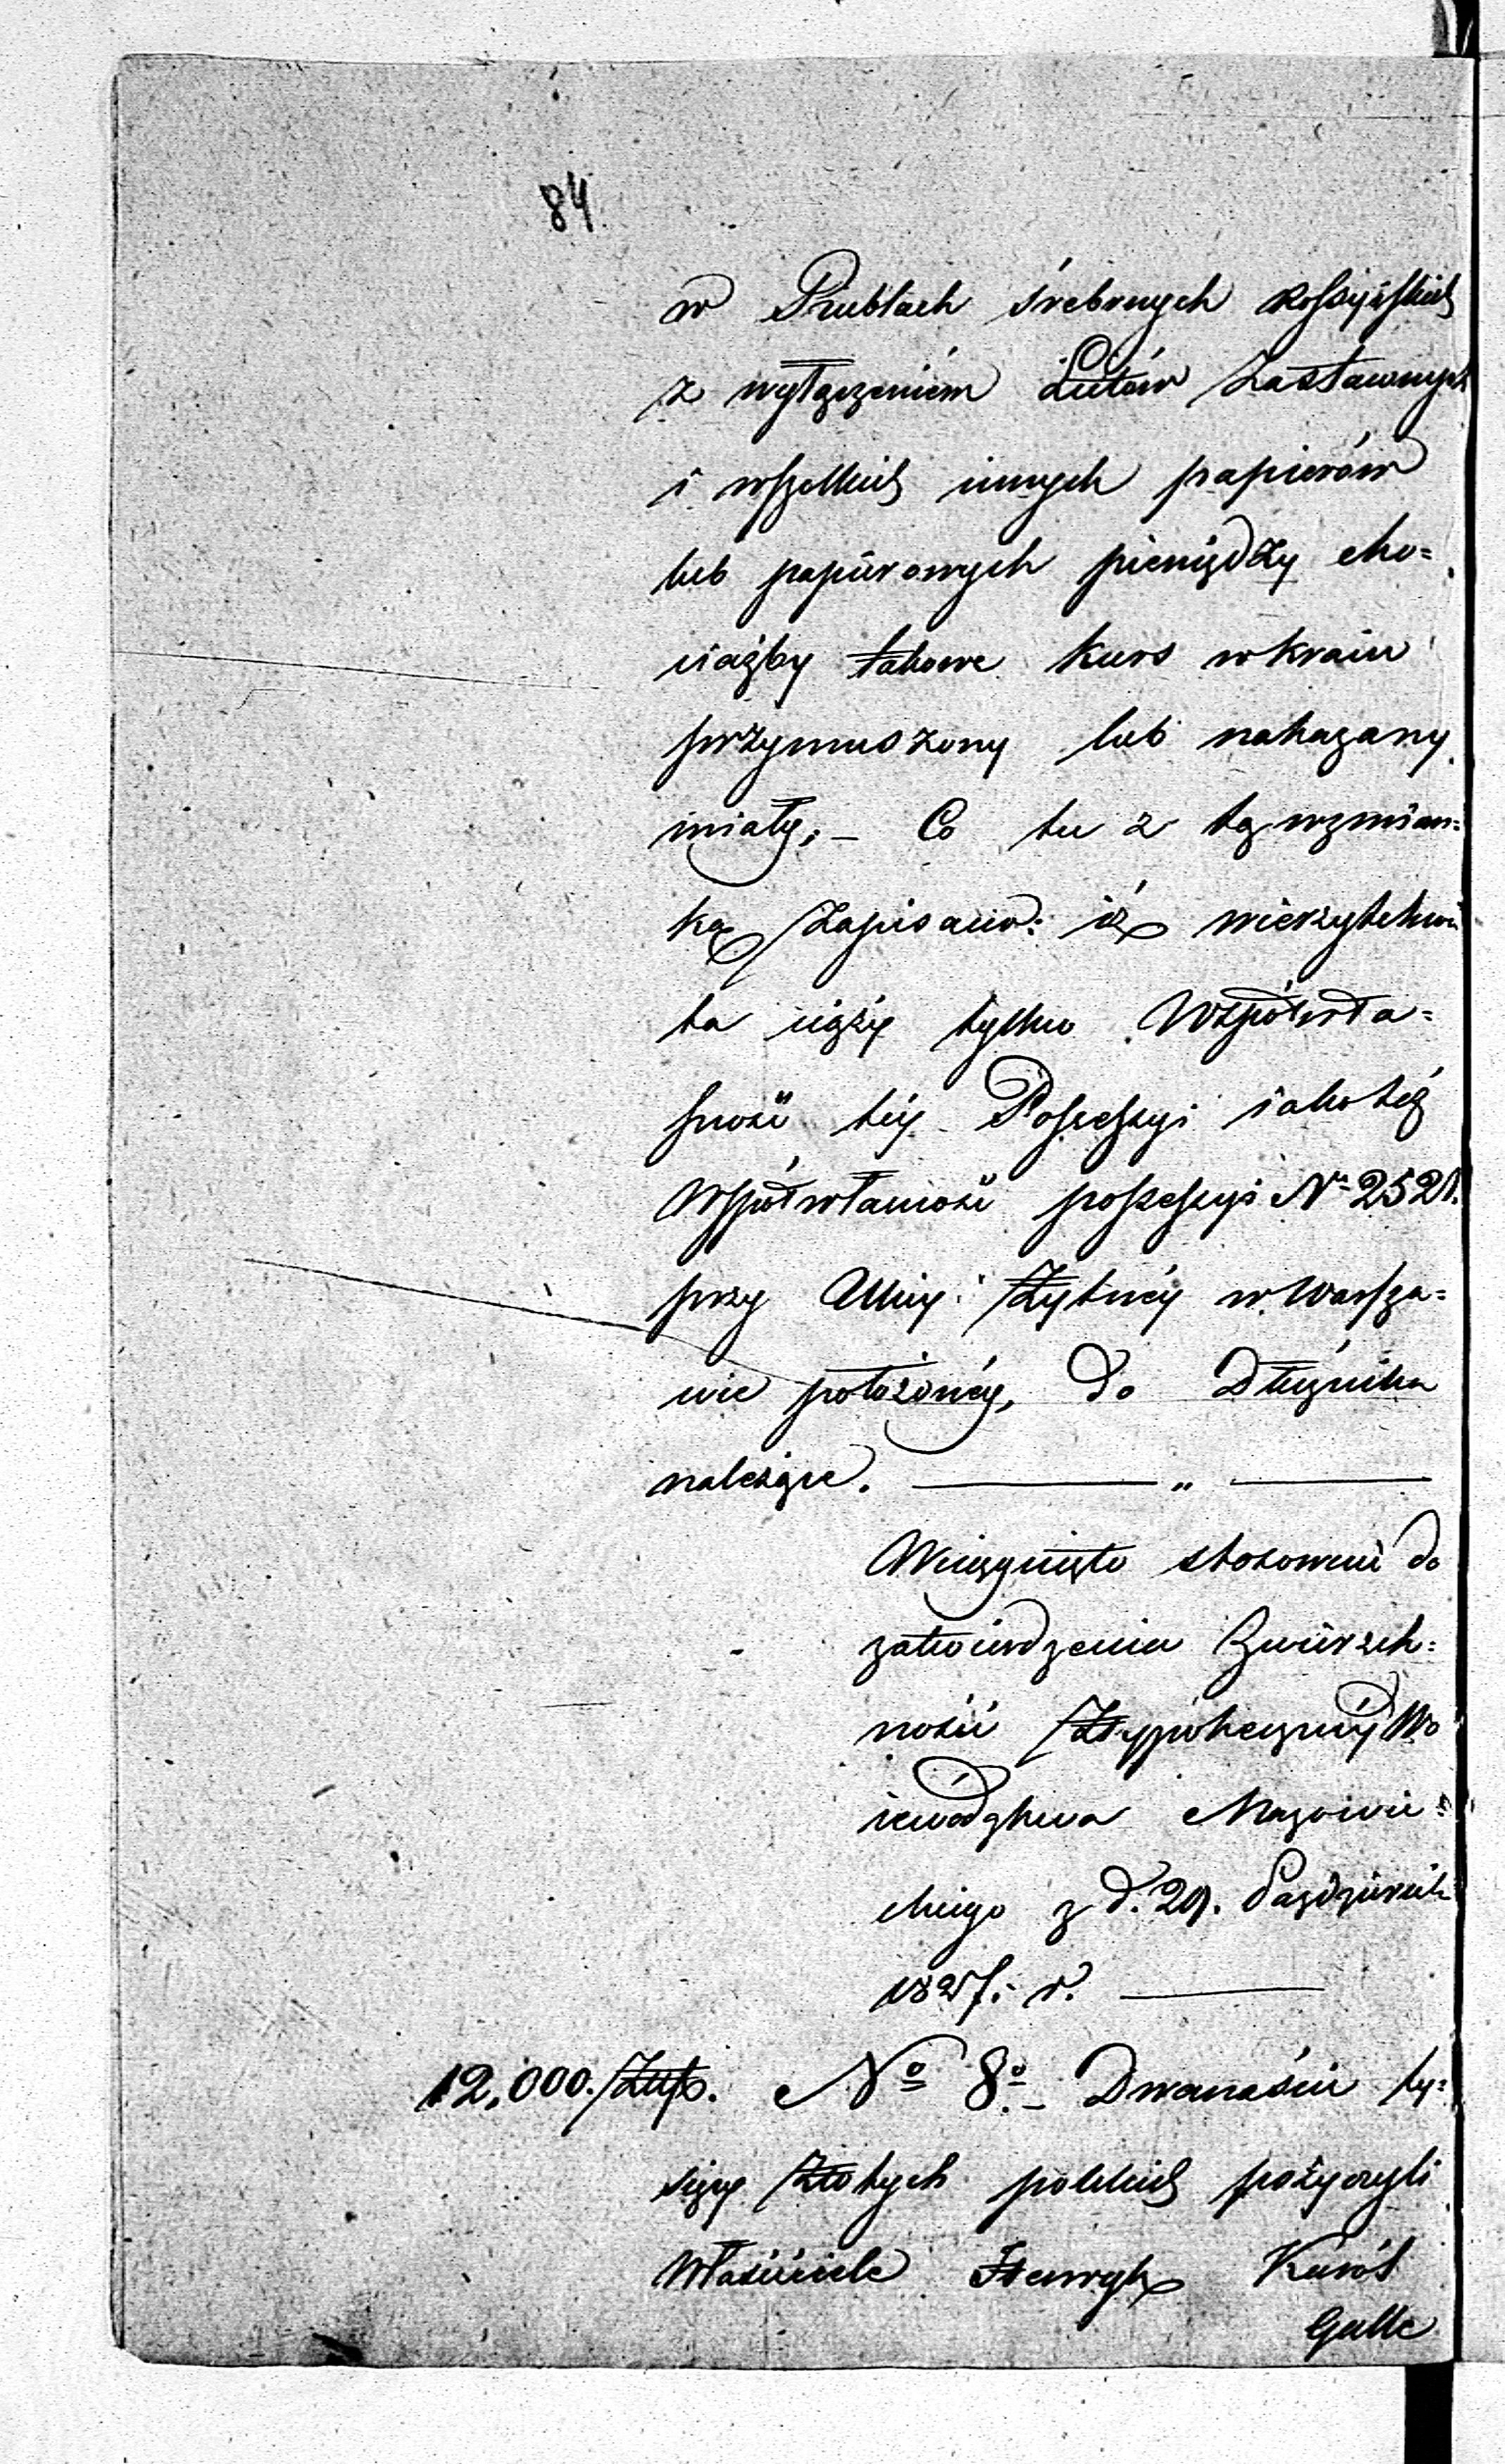 84.
w Rublach śrebrnych Rossyiskich
z wyłączeniem Listów Zastawnych
i wszelkich innych papierów
lub papierowych pieniędzy cho=
ciażby takowe kurs w kraiu
przymuszony lub nakazany
miały; – Co tu z tą wzmian=
ką Zapisano: iż wierzytelność
ta ciąży tylko Współwła=
sność téy Possessyi iako też
Współwłasność possessyi N. 2521.
przy Ulicy Żytnéy w Warsza=
wie położonéy, do Dłużnika
należące. — „ —
Wciągnięto stosownie do
zatwierdzenia Zwierzch=
ności Hypoteczney Wo
iewództwa Mazowie=
ckiego z d. 29. Października
1827. r. —
12,000. Złtp. No 8o. – Dwanaście ty=
sięcy Złotych polskich pożyczyli
Właściciele Henryk Karól
Gulke